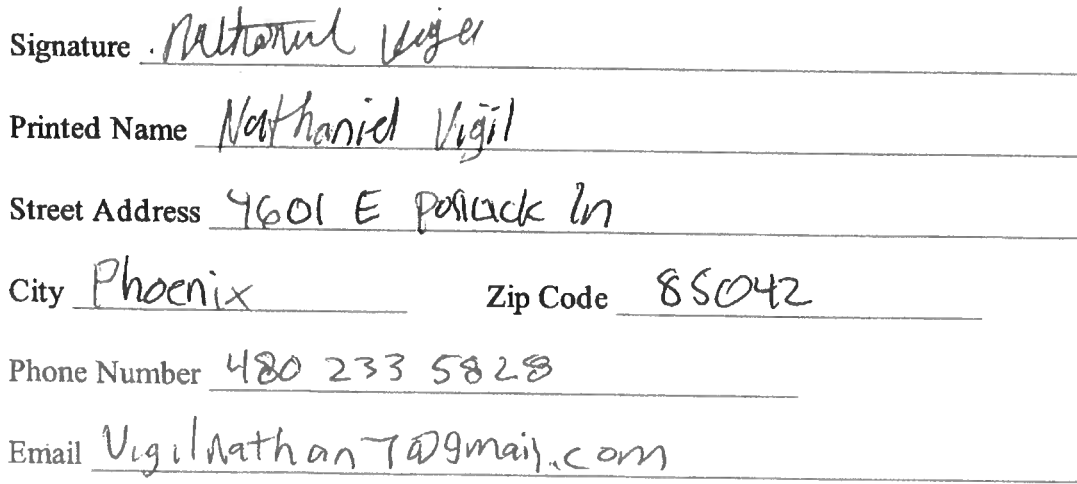 Signature Nathaniel Vigil
Printed Name Nathaniel Vigil
Street Address 4601 E Pollack ln
City Phoenix Zip Code 85042
Phone Number 480 233 5828
Email Vigilnathan7@gmail.com